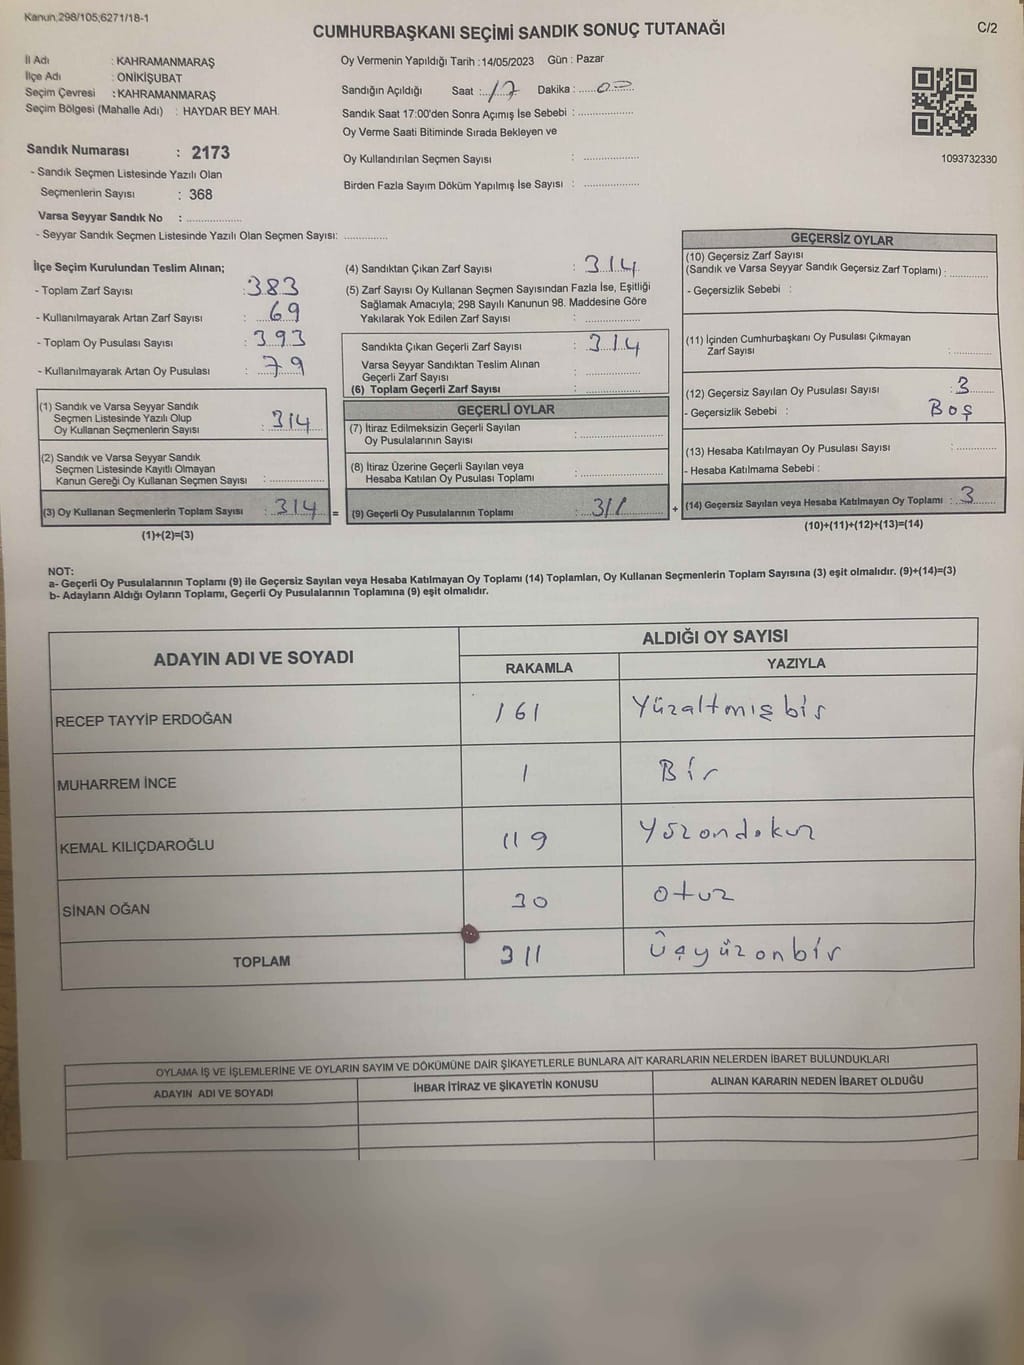 Kanun,298/105,6271/18-1
CUMHURBAŞKANI SEÇİMİ SANDIK SONUÇ TUTANAĞI
C/2
İl Adı : KAHRAMANMARAŞ
İlçe Adı : ONİKİŞUBAT
Seçim Çevresi : KAHRAMANMARAŞ
Seçim Bölgesi (Mahalle Adı) : HAYDAR BEY MAH.
Oy Vermenin Yapıldığı Tarih : 14/05/2023 Gün : Pazar
Sandığın Açıldığı Saat : 17 Dakika : 00
Sandık Saat 17:00'den Sonra Açımış İse Sebebi :
Oy Verme Saati Bitiminde Sırada Bekleyen ve
Oy Kullandırılan Seçmen Sayısı :
Birden Fazla Sayım Döküm Yapılmış İse Sayısı :
1093732330
Sandık Numarası : 2173
- Sandık Seçmen Listesinde Yazılı Olan
Seçmenlerin Sayısı : 368
Varsa Seyyar Sandık No :
- Seyyar Sandık Seçmen Listesinde Yazılı Olan Seçmen Sayısı:
İlçe Seçim Kurulundan Teslim Alınan;
- Toplam Zarf Sayısı : 383
- Kullanılmayarak Artan Zarf Sayısı : 69
- Toplam Oy Pusulası Sayısı : 393
- Kullanılmayarak Artan Oy Pusulası : 79
(1) Sandık ve Varsa Seyyar Sandık
Seçmen Listesinde Yazılı Olup
Oy Kullanan Seçmenlerin Sayısı : 314
(2) Sandık ve Varsa Seyyar Sandık
Seçmen Listesinde Kayıtlı Olmayan
Kanun Gereği Oy Kullanan Seçmen Sayısı :
(3) Oy Kullanan Seçmenlerin Toplam Sayısı : 314
(1)+(2)=(3)
=
(4) Sandıktan Çıkan Zarf Sayısı : 314
(5) Zarf Sayısı Oy Kullanan Seçmen Sayısından Fazla İse, Eşitliği
Sağlamak Amacıyla; 298 Sayılı Kanunun 98. Maddesine Göre
Yakılarak Yok Edilen Zarf Sayısı :
Sandıkta Çıkan Geçerli Zarf Sayısı : 314
Varsa Seyyar Sandıktan Teslim Alınan
Geçerli Zarf Sayısı :
(6) Toplam Geçerli Zarf Sayısı :
GEÇERLİ OYLAR
(7) İtiraz Edilmeksizin Geçerli Sayılan
Oy Pusulalarının Sayısı :
(8) İtiraz Üzerine Geçerli Sayılan veya
Hesaba Katılan Oy Pusulası Toplamı :
(9) Geçerli Oy Pusulalarının Toplamı : 311
+
GEÇERSİZ OYLAR
(10) Geçersiz Zarf Sayısı
(Sandık ve Varsa Seyyar Sandık Geçersiz Zarf Toplamı) :
- Geçersizlik Sebebi :
(11) İçinden Cumhurbaşkanı Oy Pusulası Çıkmayan
Zarf Sayısı :
(12) Geçersiz Sayılan Oy Pusulası Sayısı : 3
- Geçersizlik Sebebi : Boş
(13) Hesaba Katılmayan Oy Pusulası Sayısı :
- Hesaba Katılmama Sebebi :
(14) Geçersiz Sayılan veya Hesaba Katılmayan Oy Toplamı : 3
(10)+(11)+(12)+(13)=(14)
NOT:
a- Geçerli Oy Pusulalarının Toplamı (9) ile Geçersiz Sayılan veya Hesaba Katılmayan Oy Toplamı (14) Toplamları, Oy Kullanan Seçmenlerin Toplam Sayısına (3) eşit olmalıdır. (9)+(14)=(3)
b- Adayların Aldığı Oyların Toplamı, Geçerli Oy Pusulalarının Toplamına (9) eşit olmalıdır.
ADAYIN ADI VE SOYADI ALDIĞI OY SAYISI
RAKAMLA YAZIYLA
RECEP TAYYİP ERDOĞAN 161 Yüzaltmışbir
MUHARREM İNCE 1 Bir
KEMAL KILIÇDAROĞLU 119 Yüzondokuz
SİNAN OĞAN 30 otuz
TOPLAM 311 Üçyüzonbir
OYLAMA İŞ VE İŞLEMLERİNE VE OYLARIN SAYIM VE DÖKÜMÜNE DAİR ŞİKAYETLERLE BUNLARA AİT KARARLARIN NELERDEN İBARET BULUNDUKLARI
ADAYIN ADI VE SOYADI İHBAR İTİRAZ VE ŞİKAYETİN KONUSU ALINAN KARARIN NEDEN İBARET OLDUĞU